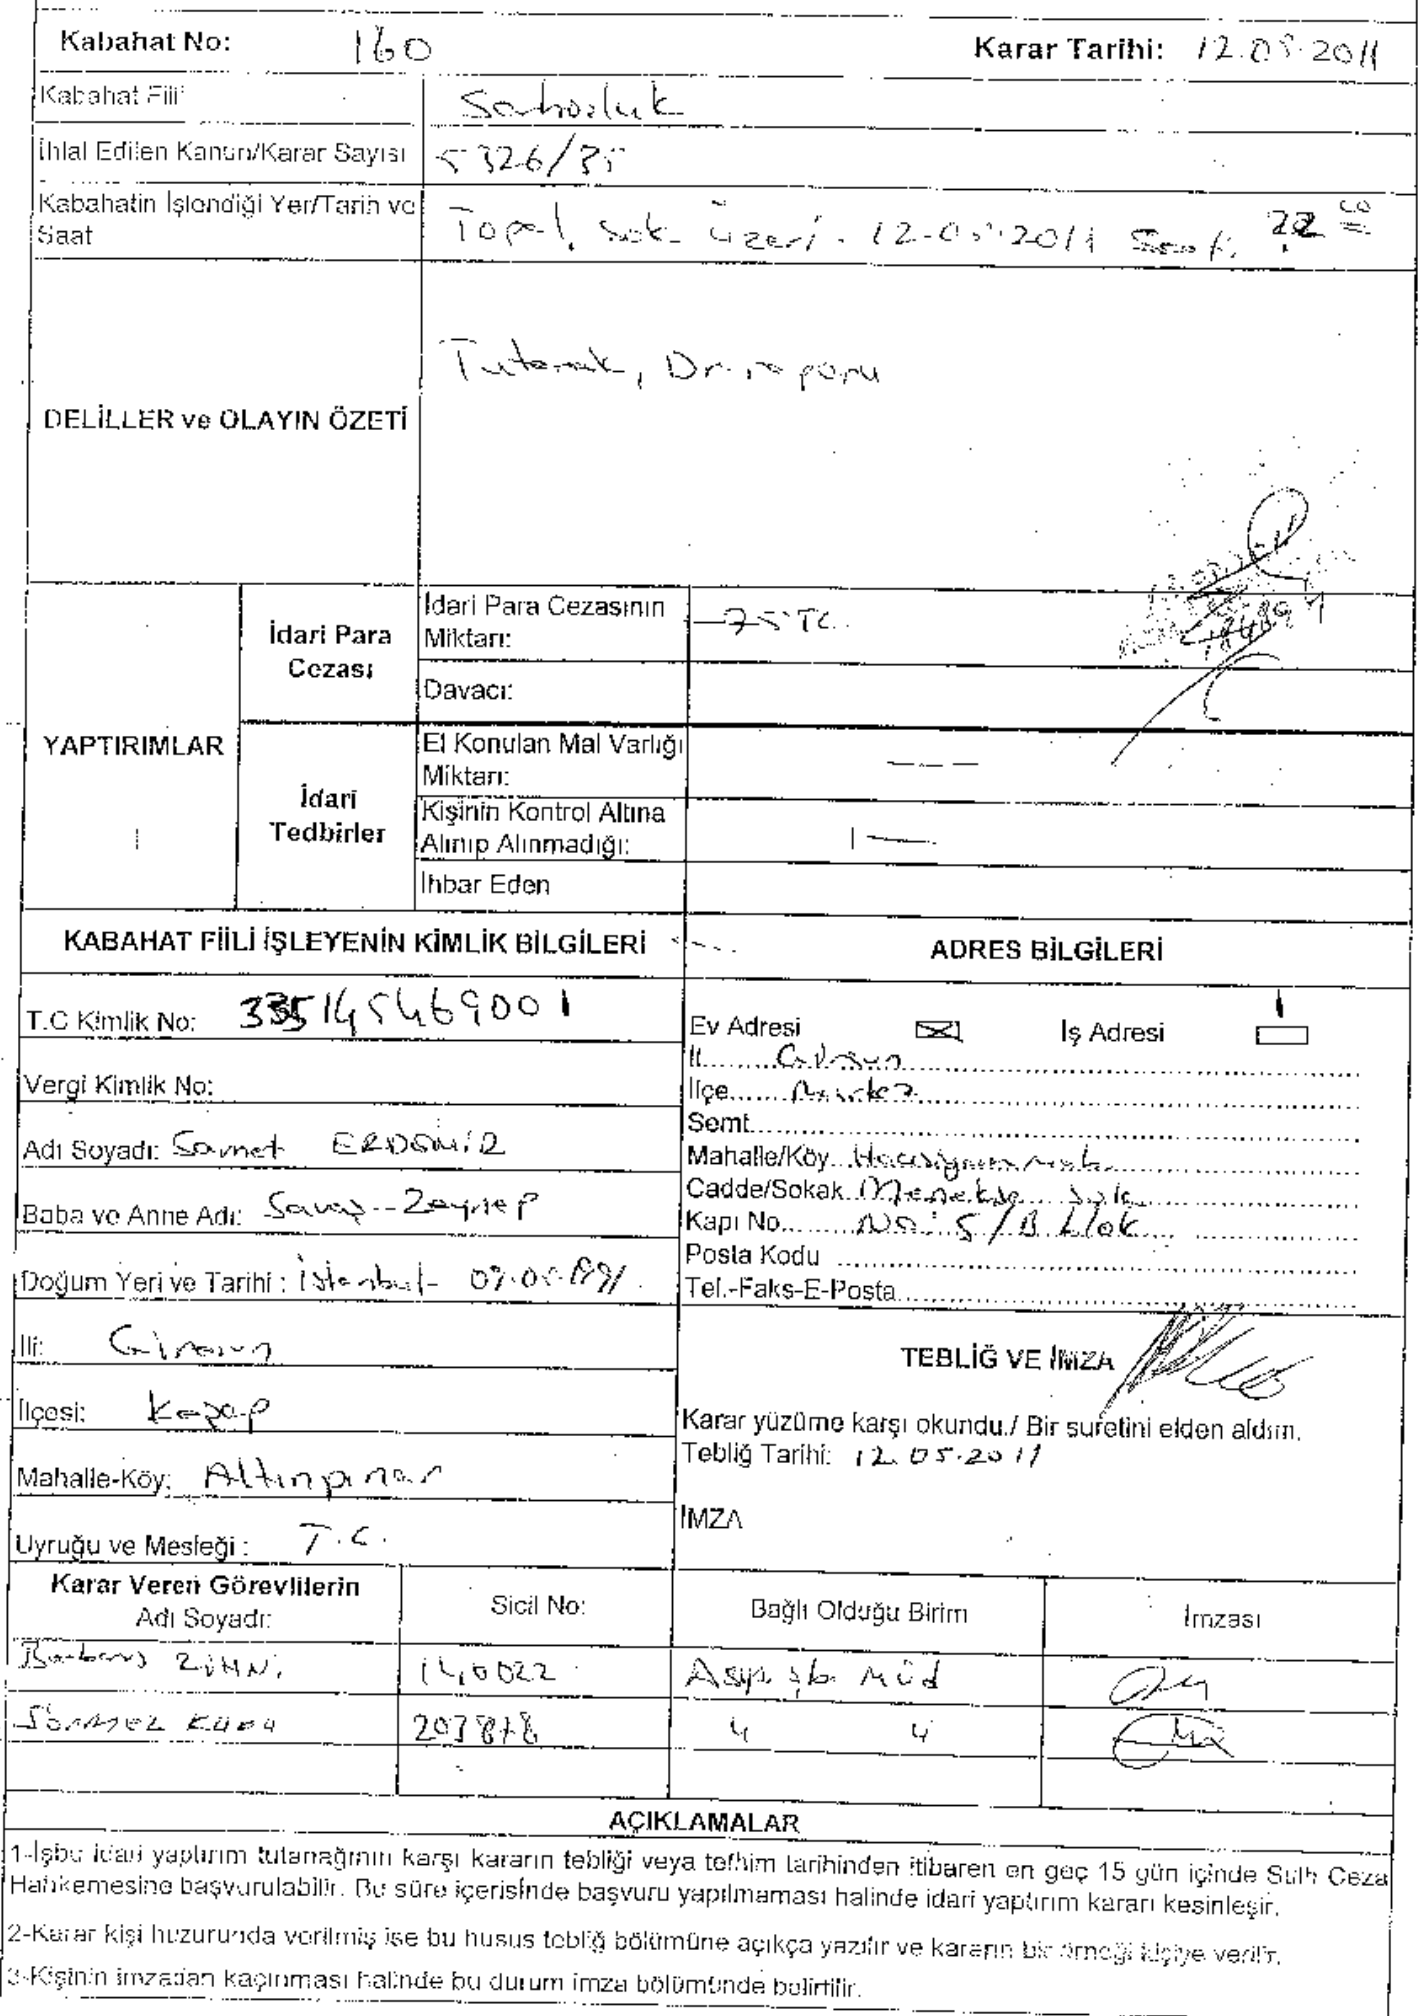 Kabahat No: 160 Karar Tarihi: 12.05.2011
Kabahat Fiili Sarhoşluk
İhlal Edilen Kanun/Karar Sayısı 5326/35
Kabahatin İşlendiği Yer/Tarih ve Saat Topal sok üzeri. 12.05.2011 Saat: 22 00
DELİLLER ve OLAYIN ÖZETİ
Tutanak, Dr. raporu
YAPTIRIMLAR
İdari Para Cezası
İdari Para Cezasının Miktarı: 75 TL.
Davacı:
İdari Tedbirler
El Konulan Mal Varlığı Miktarı:
Kişinin Kontrol Altına Alınıp Alınmadığı:
İhbar Eden
KABAHAT FİİLİ İŞLEYENİN KİMLİK BİLGİLERİ
T.C Kimlik No: 33514546900 1
Vergi Kimlik No:
Adı Soyadı: Samet ERDEMİR
Baba ve Anne Adı: Savaş - Zeynep
Doğum Yeri ve Tarihi : İstanbul - 1991
İli: Giresun
İlçesi: Keşap
Mahalle-Köy: Altınpınar
Uyruğu ve Mesleği : T.C.
ADRES BİLGİLERİ
Ev Adresi İş Adresi
İl Giresun
İlçe Merkez
Semt
Mahalle/Köy Hacısiyam mah.
Cadde/Sokak Menekşe sok
Kapı No No: 5/B blok
Posta Kodu
Tel.-Faks-E-Posta
TEBLİĞ VE İMZA
Karar yüzüme karşı okundu./ Bir suretini elden aldım.
Tebliğ Tarihi: 12.05.2011
İMZA
Karar Veren Görevlilerin
Adı Soyadı: Sicil No: Bağlı Olduğu Birim İmzası
Barbaros ZİHNİ 140022 Asyş şb. Müd
203878 " "
AÇIKLAMALAR
1-İşbu idari yaptırım tutanağının karşı kararın tebliği veya tefhim tarihinden itibaren en geç 15 gün içinde Sulh Ceza
Mahkemesine başvurulabilir. Bu süre içerisinde başvuru yapılmaması halinde idari yaptırım kararı kesinleşir.
2-Karar kişi huzurunda verilmiş ise bu husus tebliğ bölümüne açıkça yazılır ve kararın bir örneği kişiye verilir.
3-Kişinin imzadan kaçınması halinde bu durum imza bölümünde belirtilir.